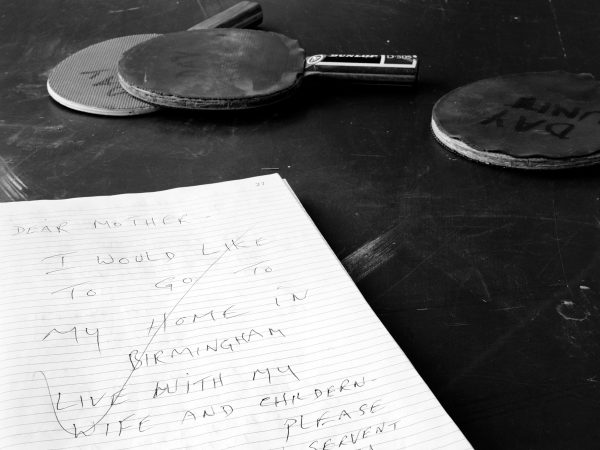 DUNLOP
DAY
UNIT
DEAR MOTHER.
I WOULD LIKE
TO GO TO
MY HOME IN
BIRMINGHAM
LIVE WITH MY
WIFE AND CHILDERN.
PLEASE
SERVENT